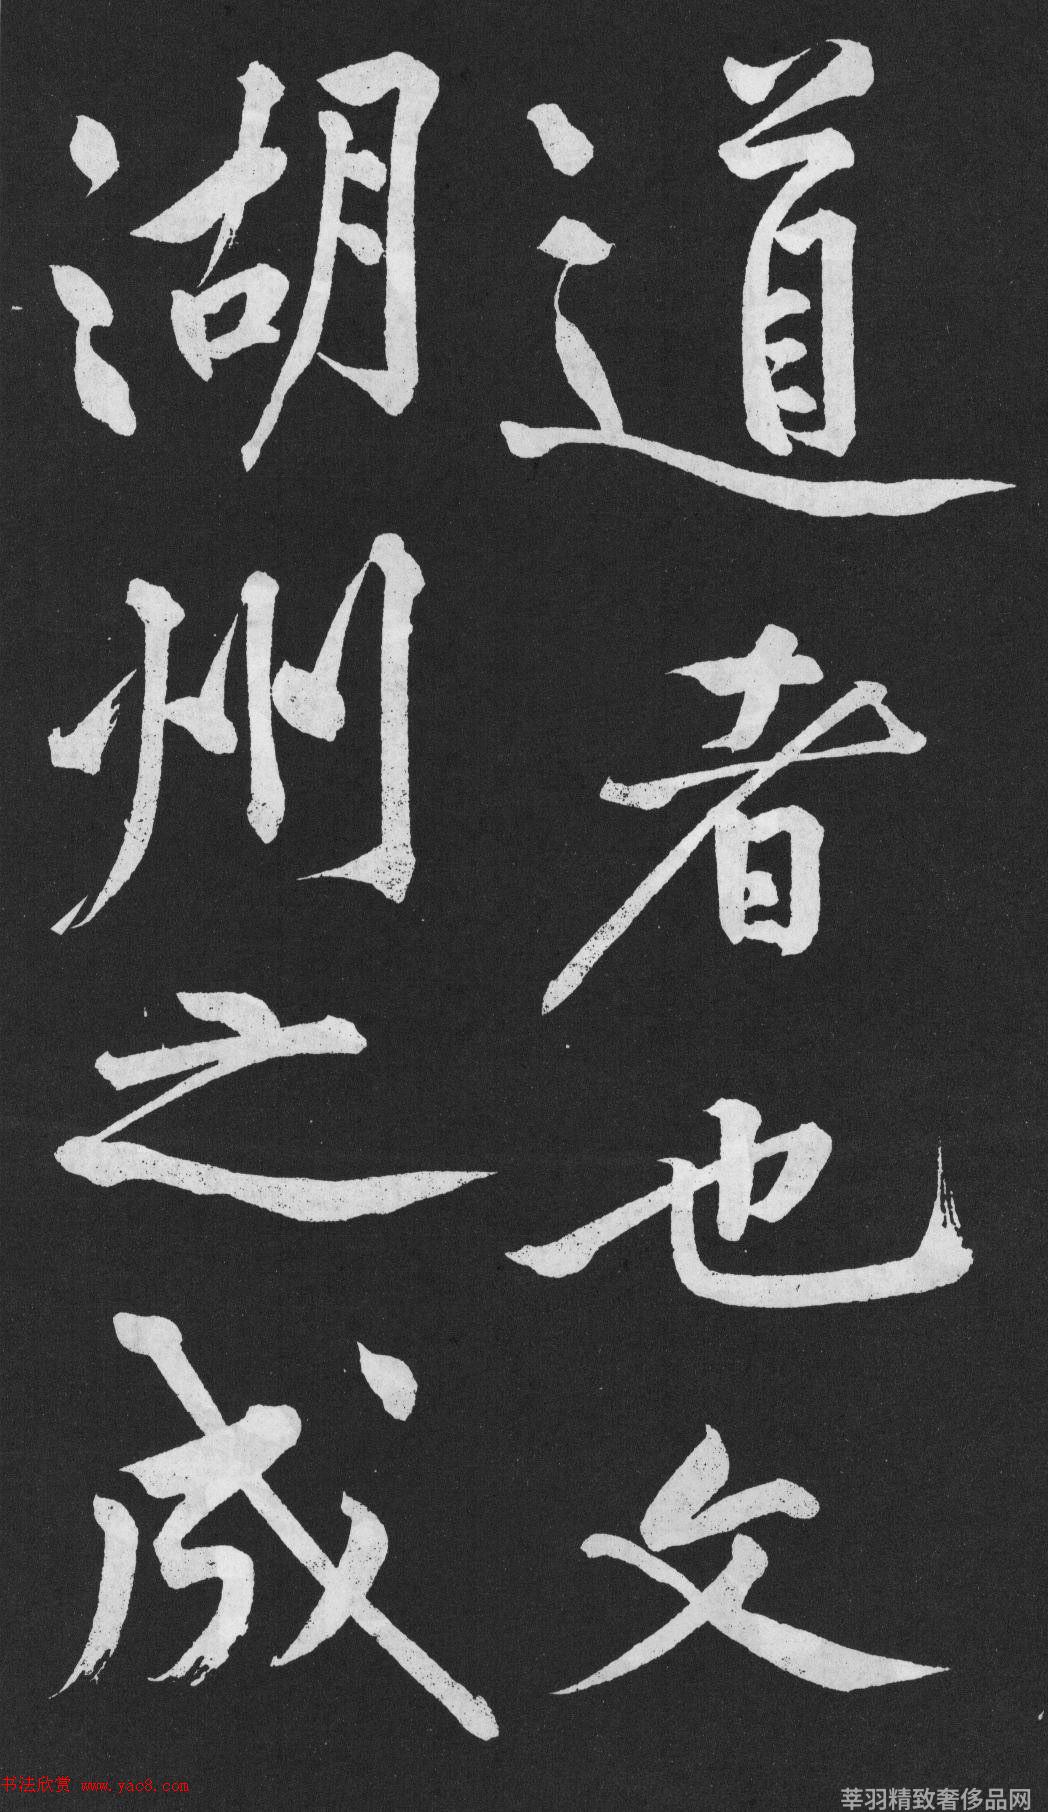 道者也文
湖州之成
书法欣赏 www.yac8.com
莘羽精致奢侈品网